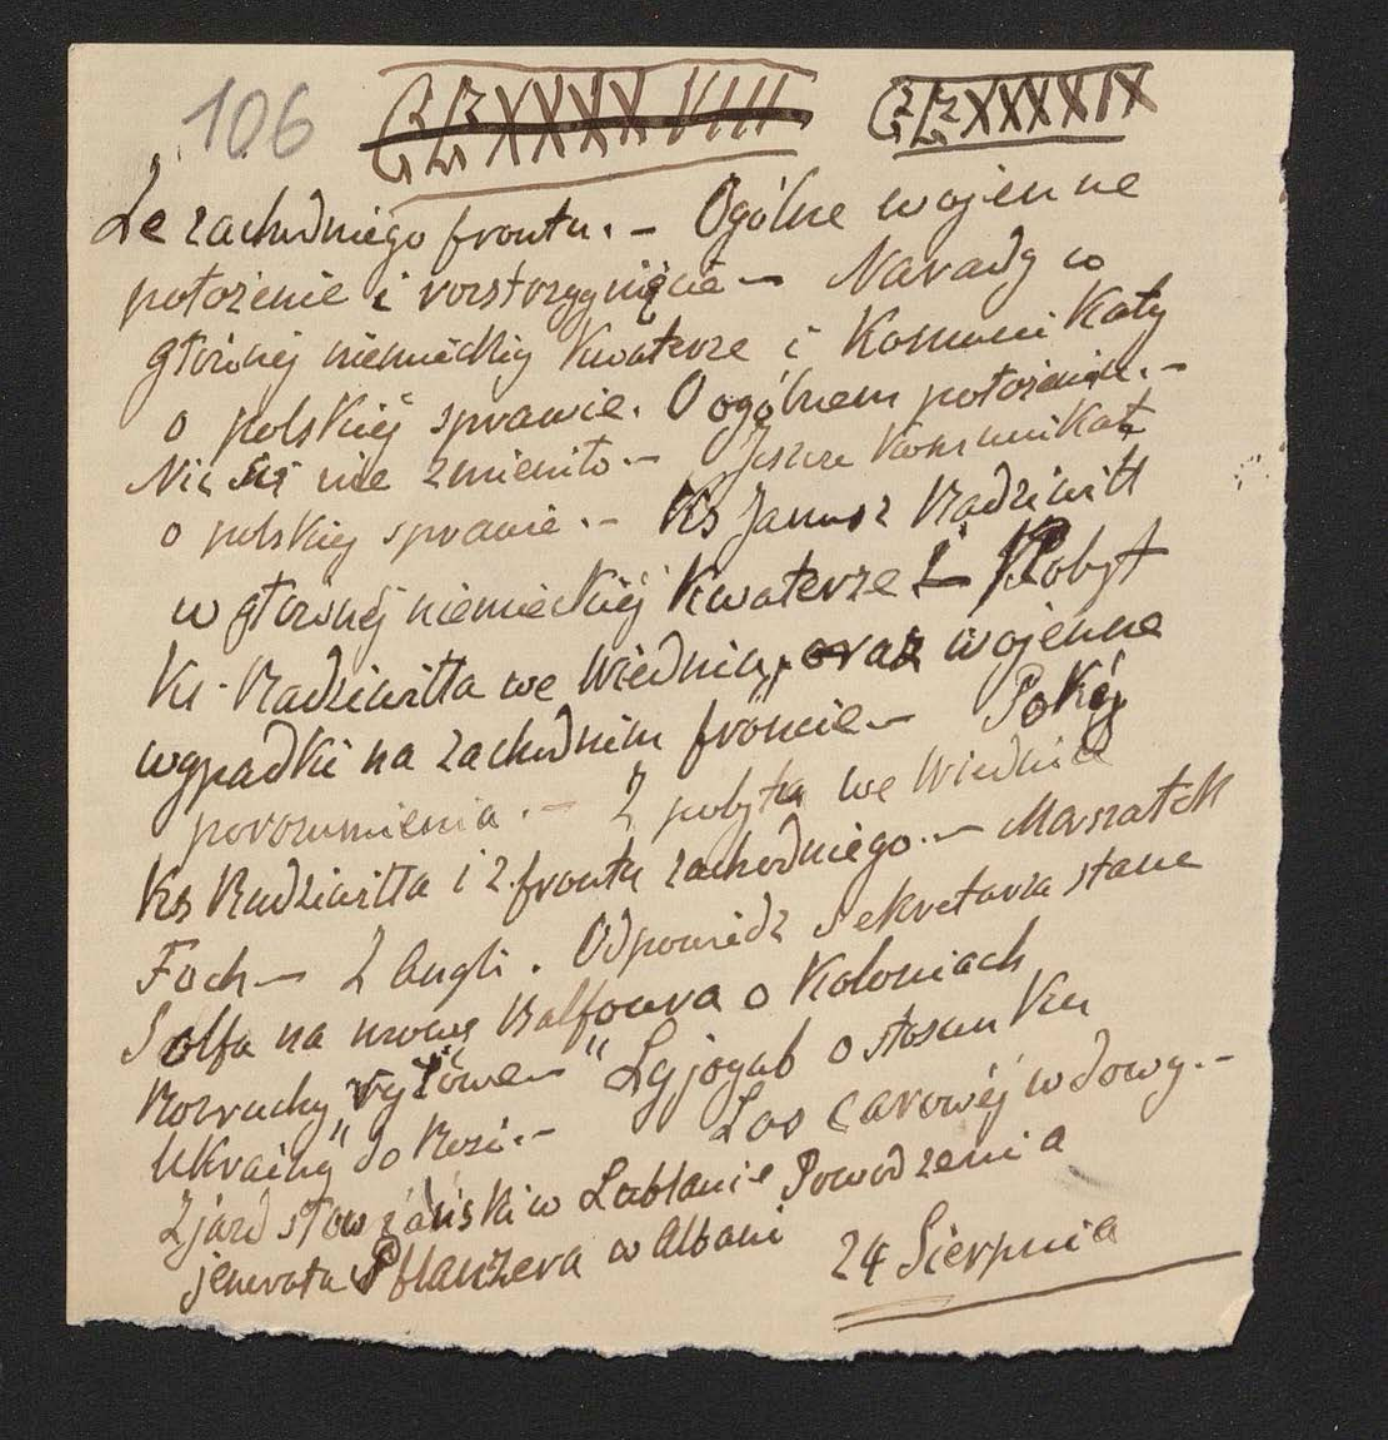 106 CLXXXXVIII CLXXXXIX
Ze zachodniego frontu. – Ogólne wojenne
położenie i rozstrzygnięcie – Narady w
głównej niemieckiej Kwaterze i Komunikaty
o polskiéj sprawie. O ogólnem położeniu. –
Nic się nie zmieniło – Jeszcze Komunikat
o polskiej sprawie. – Ks Janusz Radziwiłł
w głównéj niemieckiéj Kwaterze – Pobyt
Ks. Radziwiłła we Wiedniu, oraz wojenne
wypadki na zachodnim froncie – Pokój
porozumienia. – Z pobytu we Wiedniu
Ks Radziwiłła i z frontu zachodniego. – Marszałek
Foch – Z Angli. Odpowiedz Sekretarza stanu
Solfa na mowę Balfoura o Koloniach
Rozruchy "ryżowe" – Łyjogub o stosunku
Ukrainy do Rosi. – Los carowéj wdowy. –
Zjazd słowiański w Lublanie Powodzenia
jenerała Pflanzera w Albani 24 Sierpnia